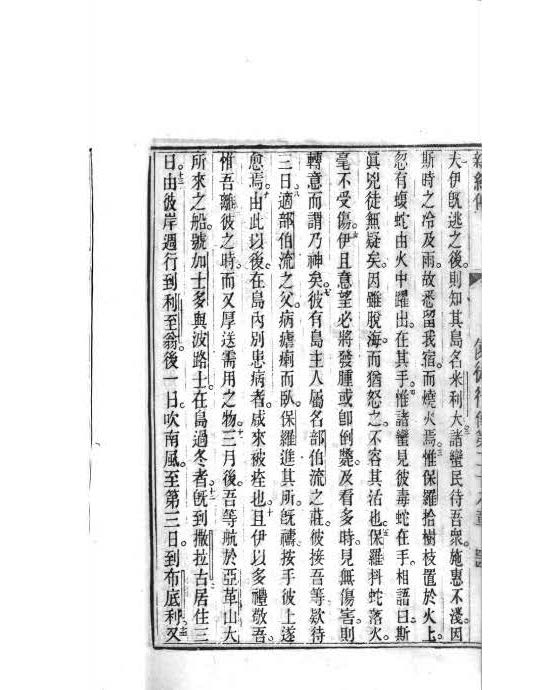 夫伊旣逃之後則知其島名米利大諸蠻民待吾衆施惠不淺因
斯時之冷及雨故悉留我宿而燒火焉惟保羅拾樹枝置於火上
忽有蝮蛇由火中躍出在其手惟諸蠻見彼毒蛇在手相語曰斯
眞兇徒無疑矣因雖脫海而猶怒之不容其活也保羅抖蛇落火
毫不受傷伊且意望必將發腫或卽倒斃及看多時見無傷害則
轉意而謂乃神矣彼有島主人屬名部伯流之莊彼接吾等欵待
三日適部伯流之父病瘧痢而臥保羅進其所旣禱按手彼上遂
愈焉由此以後在島內別患病者咸來被痊也且伊以多禮敬吾
惟吾離彼之時而又厚送需用之物三月後吾等航於亞革山大
所來之船號加士多與波路士在島過冬者旣到撒拉古居住三
日由彼岸週行到利至翁後一日吹南風至第三日到布底利又